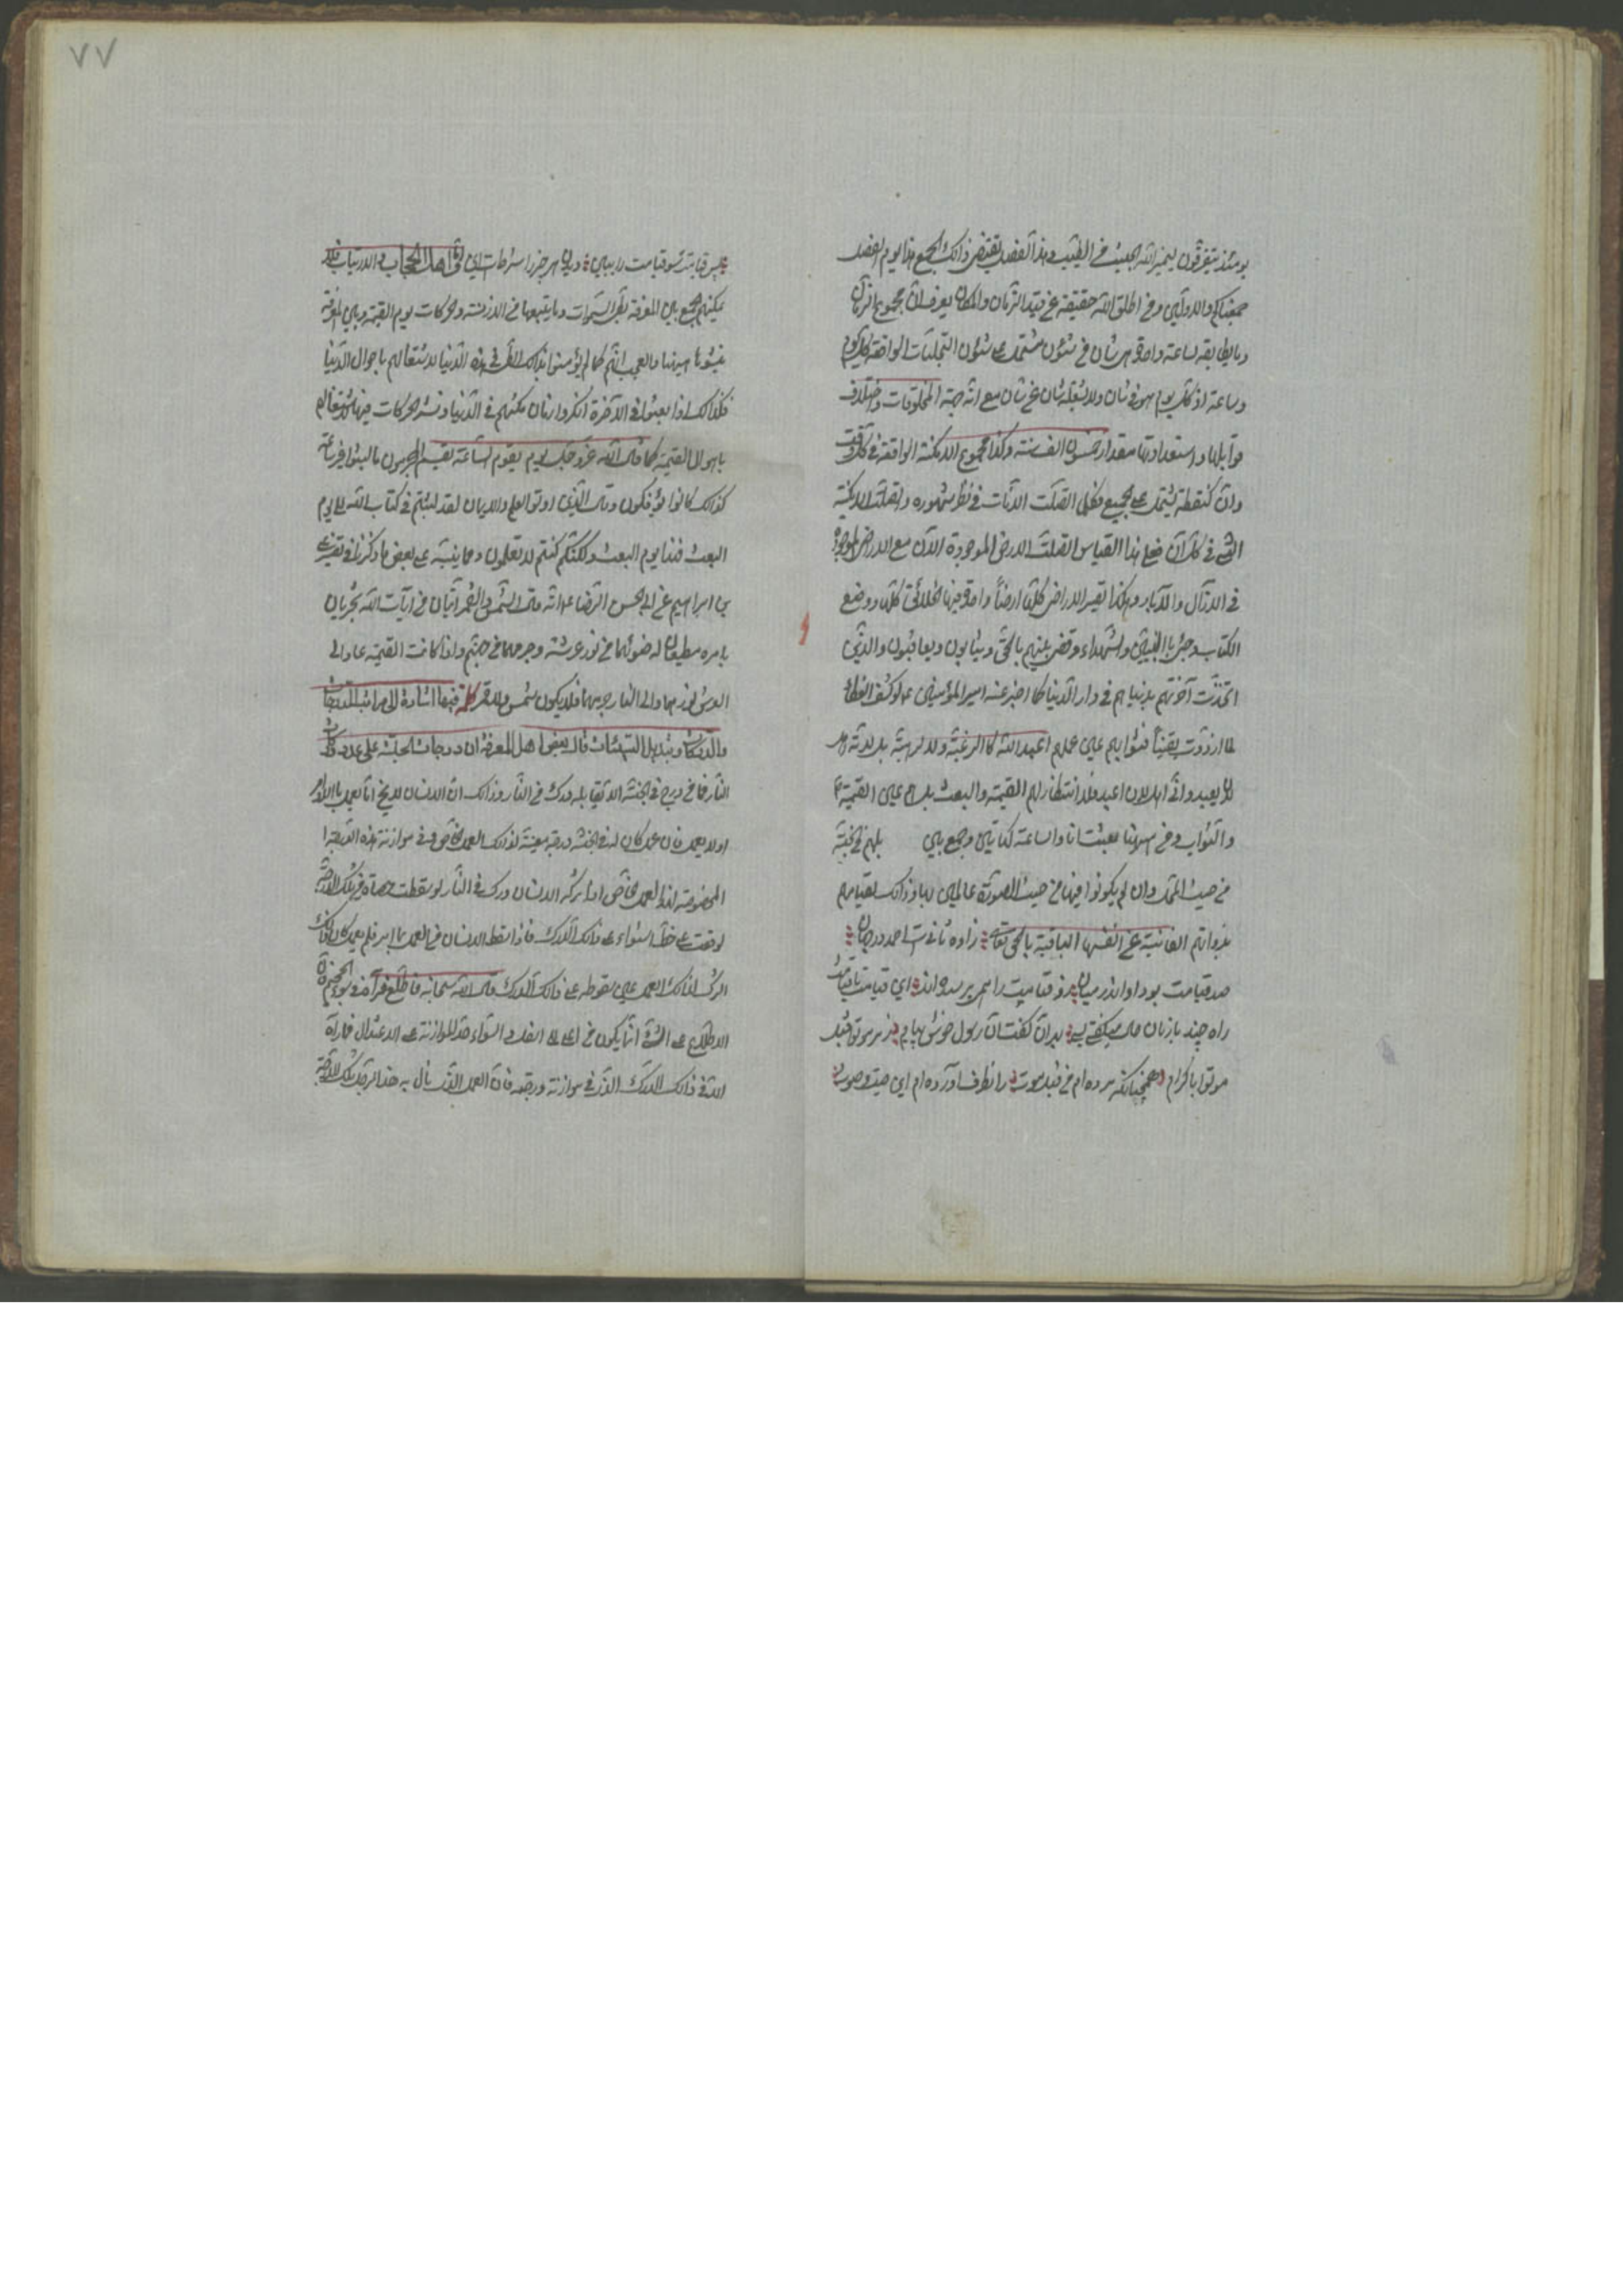 ٧٧
يومئذ يتفرقون ليميز الله الخبيث من الطيب وهذا الفصل يقتضى ذلك الجمع هذا يوم الفصل
جمعناكم والاولين ومن اطلق الله حقيقته عن قيد الزمان والمكان يعرف ان مجموع الزمان
وما يطابقه لساعة واحدة هى شأن من شئون مشتمل على شئون التجليات الواقعة فى كل يوم
وساعة اذ كل يوم هو فى شأن ولا يشغله شأن عن شأن مع انه جهة المخلوقات واختلاف
قوابلها واستعداداتها مقدار خمسون الف سنة وكذا مجموع الامكنة الواقعة فى كل وقت
وآن كنقطة يشتمل على الجميع فكما اتصلت الآنات فى نظر شهوده واتصلت الامكنة
التى فى كل آن فعلى هذا القياس اتصلت الارض الموجودة الآن مع الارض الموجودة
فى الآزال والآباد وهكذا تصير الاراضى كلها ارضاً واحدة فيها الخلائق كلها ووضع
الكتاب وجئ بالنبيين والشهداء وقضى بينهم بالحق ويثابون ويعاقبون والذين
اتحدت آخرتهم بدنياهم فى دار الدنيا كما اخبر عنه امير المؤمنين ع لو كشف الغطاء
ما ازددت يقيناً فثوابهم عين عملهم اعبد الله لا لرغبة ولا لرهبة بل لانه
اهل لان اعبد ولا انتظار لهم القيمة والبعث بل هم عين القيمة
والثواب ومن ههنا بعثت انا والساعة كهاتين وجمع بين
من حيث المحمل وان لم يكونوا فيها من حيث الصورة عالمين بها وذلك لقيامهم
بذواتهم الفانية عن انفسها الباقية بالحق تعالى زاده ثانى است احمد در جهان
صد قيامت بود او اندر عيان زو قيامت را همى پرسيده اند اى قيامت تا قيامت
راه چند با زبان حال ميگفتى بسى بهر آن گفت آن رسول خوش پيام رمز موتوا قبل
موت يا كرام همچنانكه مرده ام من قبل موت زانطرف آورده ام اين صيت و صوت
پس قيامت شو قيامت را ببين ديدن هر چيز را شرط است اين فى اهل الحجاب والارتياب فلا
يمكنهم الجمع بين المعرفة بطى السموات وما يتبعها من الازمنة والحركات يوم القيمة وبين المعرفة
بثبوتها ههنا والعجب انهم كما لم يؤمنوا بذلك الطى فى هذه الدنيا لاشتغالهم باحوال الدنيا
فكذلك اذا بعثوا فى الآخرة انكروا زمان مكثهم فى الدنيا ونشر الحركات فيها لاشتغالهم
باهوال القيمة كما قال الله عز وجل يوم يقوم الساعة يقسم المجرمون ما لبثوا غير ساعة
كذلك كانوا يؤفكون وقال الذين اوتوا العلم والايمان لقد لبثتم فى كتاب الله الى يوم
البعث فهذا يوم البعث ولكنكم كنتم لا تعلمون ومما ينبه على بعض ما ذكرنا فى تفسير على
بن ابراهيم عن ابى الحسن الرضا ع انه قال الشمس والقمر آيتان من آيات الله يجريان
بامره مطيعان له ضوئهما من نور عرشه وجرمهما من جهنم واذا كانت القيمة عاد الى
العرش نورهما وعاد الى النار جرمهما فلا يكون شمس ولا قمر كلمة فيها اشارة الى مراتب الدرجات
والدركات وتبديل السيئات قال بعض اهل المعرفة ان درجات الجنة على عدد دركات
النار فما من درج فى الجنة الا تقابله درك من النار وذلك ان الانسان لا يخ اما يعمل بالامر
او لا يعمل فان عمل كان له فى الجنة درجة معينة لذلك العمل الخاص وفى موازنة هذه الدرجة
المخصوصة لهذا العمل الخاص اذا تركه الانسان درك فى النار لو سقطت حصاة من تلك الدرجة
لوقعت على خط استواء على ذلك الدرك فاذا سقط الانسان من العمل بما امر فلم يعمل كان ذلك
الترك لذلك العمل عين سقوطه على ذلك الدرك قال الله سبحانه فاطلع فرآه فى سواء الجحيم
الاطلاع على الشئ انما يكون من اعلى الى اسفل والسواء حد الموازنة على الاعتدال فما رآه
الا فى ذلك الدرك الذى فى موازنة درجته فان العمل الذى نال به هذا الرجل تلك الدرجة